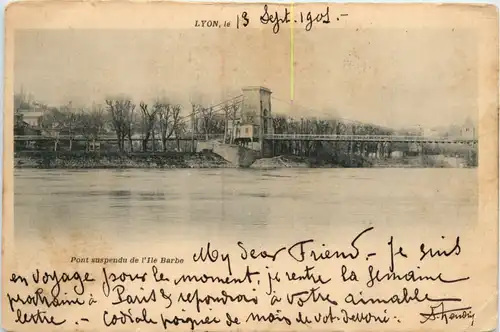 LYON, le 13 Sept. 1901.-
Pont suspendu de l'Ile Barbe
My dear Friend.- Je suis
en voyage pour le moment, je rentre la semaine
prochaine à Paris & repondrai à votre aimable
lettre.- Cordiale poignée de main de vot. devoué.-